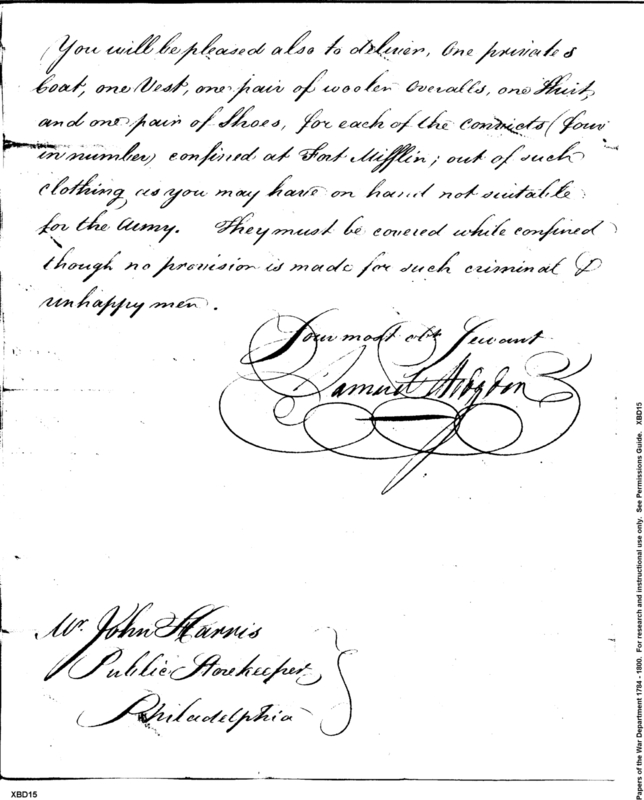 You will be pleased also to deliver, One privates
Coat, one Vest, one pair of woolen Overalls, one Shirt,
and one pair of Shoes, for each of the Convicts (four
in number) confined at Fort Mifflin; out of such
clothing as you may have on hand not suitable
for the Army. They must be covered while confined
though no provision is made for such criminal &
unhappy men.
Your most obt Servant
Samuel Hodgdon
Mr. John Harris
Public Storekeeper
Philadelphia
XBD15
Papers of the War Department 1784 - 1800. For research and instructional use only. See Permissions Guide. XBD15